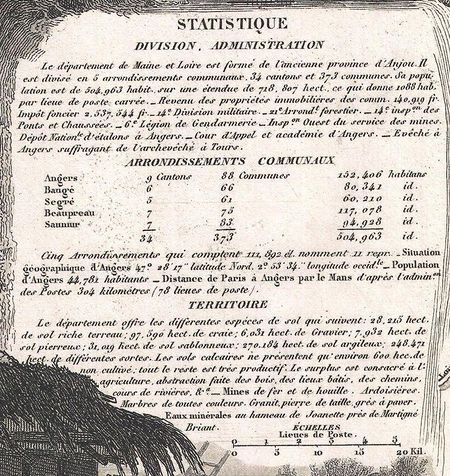 STATISTIQUE
DIVISION, ADMINISTRATION
Le département de Maine et Loire est formé de l'ancienne province d'Anjou. Il
est divisé en 5 arrondissements communaux, 34 cantons et 373 communes. Sa popu-
lation est de 504,963 habit. sur une étendue de 718, 807 hect., ce qui donne 1088 hab.
par lieue de poste carrée._ Revenu des propriétés immobilières des comm. 40,919 fr.
Impôt foncier 2,537,544 fr._14e Division militaire._21e Arrondt. forestier._14e inspon. des
Ponts et Chaussées._ 6e Légion de Gendarmerie._ Inspon. Ouest du service des mines.
Dépôt Nationl. d'étalons à Angers._ Cour d'Appel et académie d'Angers._ Evêché à
Angers suffragant de l'archevêché à Tours.
ARRONDISSEMENTS COMMUNAUX
Angers 9 Cantons 88 Communes 152,406 habitans
Baugé 6 66 80,341 id.
Segré 5 61 60,210 id.
Beaupreau 7 75 117,078 id.
Saumur 7 83 94,928 id.
34 373 504,963 id.
Cinq Arrondissements qui comptent 111,892 él. nomment 11 repr._ Situation
géographique d'Angers 47°. 28' 17" latitude Nord. 2° 53' 34" longitude occidle._ Population
d'Angers 44,781 habitants_ Distance de Paris à Angers par le Mans d'après l'adminon.
des Postes 304 kilomètres (78 lieues de poste).
TERRITOIRE
Le département offre les différentes espèces de sol qui suivent: 28,215 hect.
de sol riche terreau; 97,590 hect. de craie; 6,031 hect. de Gravier; 7,932 hect. de
sol pierreux; 31,119 hect de sol sablonneux; 270,184 hect. de sol argileux; 248,471
hect. de différentes sortes. Les sols calcaires ne présentent qu'environ 600 hec. de
non cultivé: tout le reste est très productif. Le surplus est consacré à l'a-
agriculture, abstraction faite des bois, des lieux bâtis, des chemins,
cours de rivières, &a._ Mines de fer et de houille. Ardoisières.
Marbres de toutes couleurs. Granit, pierre de taille, grès à paver.
Eaux minérales au hameau de Joanette près de Martigné
Briant.
ÉCHELLES
Lieues de Poste.
0 1 2 3 4 5
0 5 10 15 20 Kil.